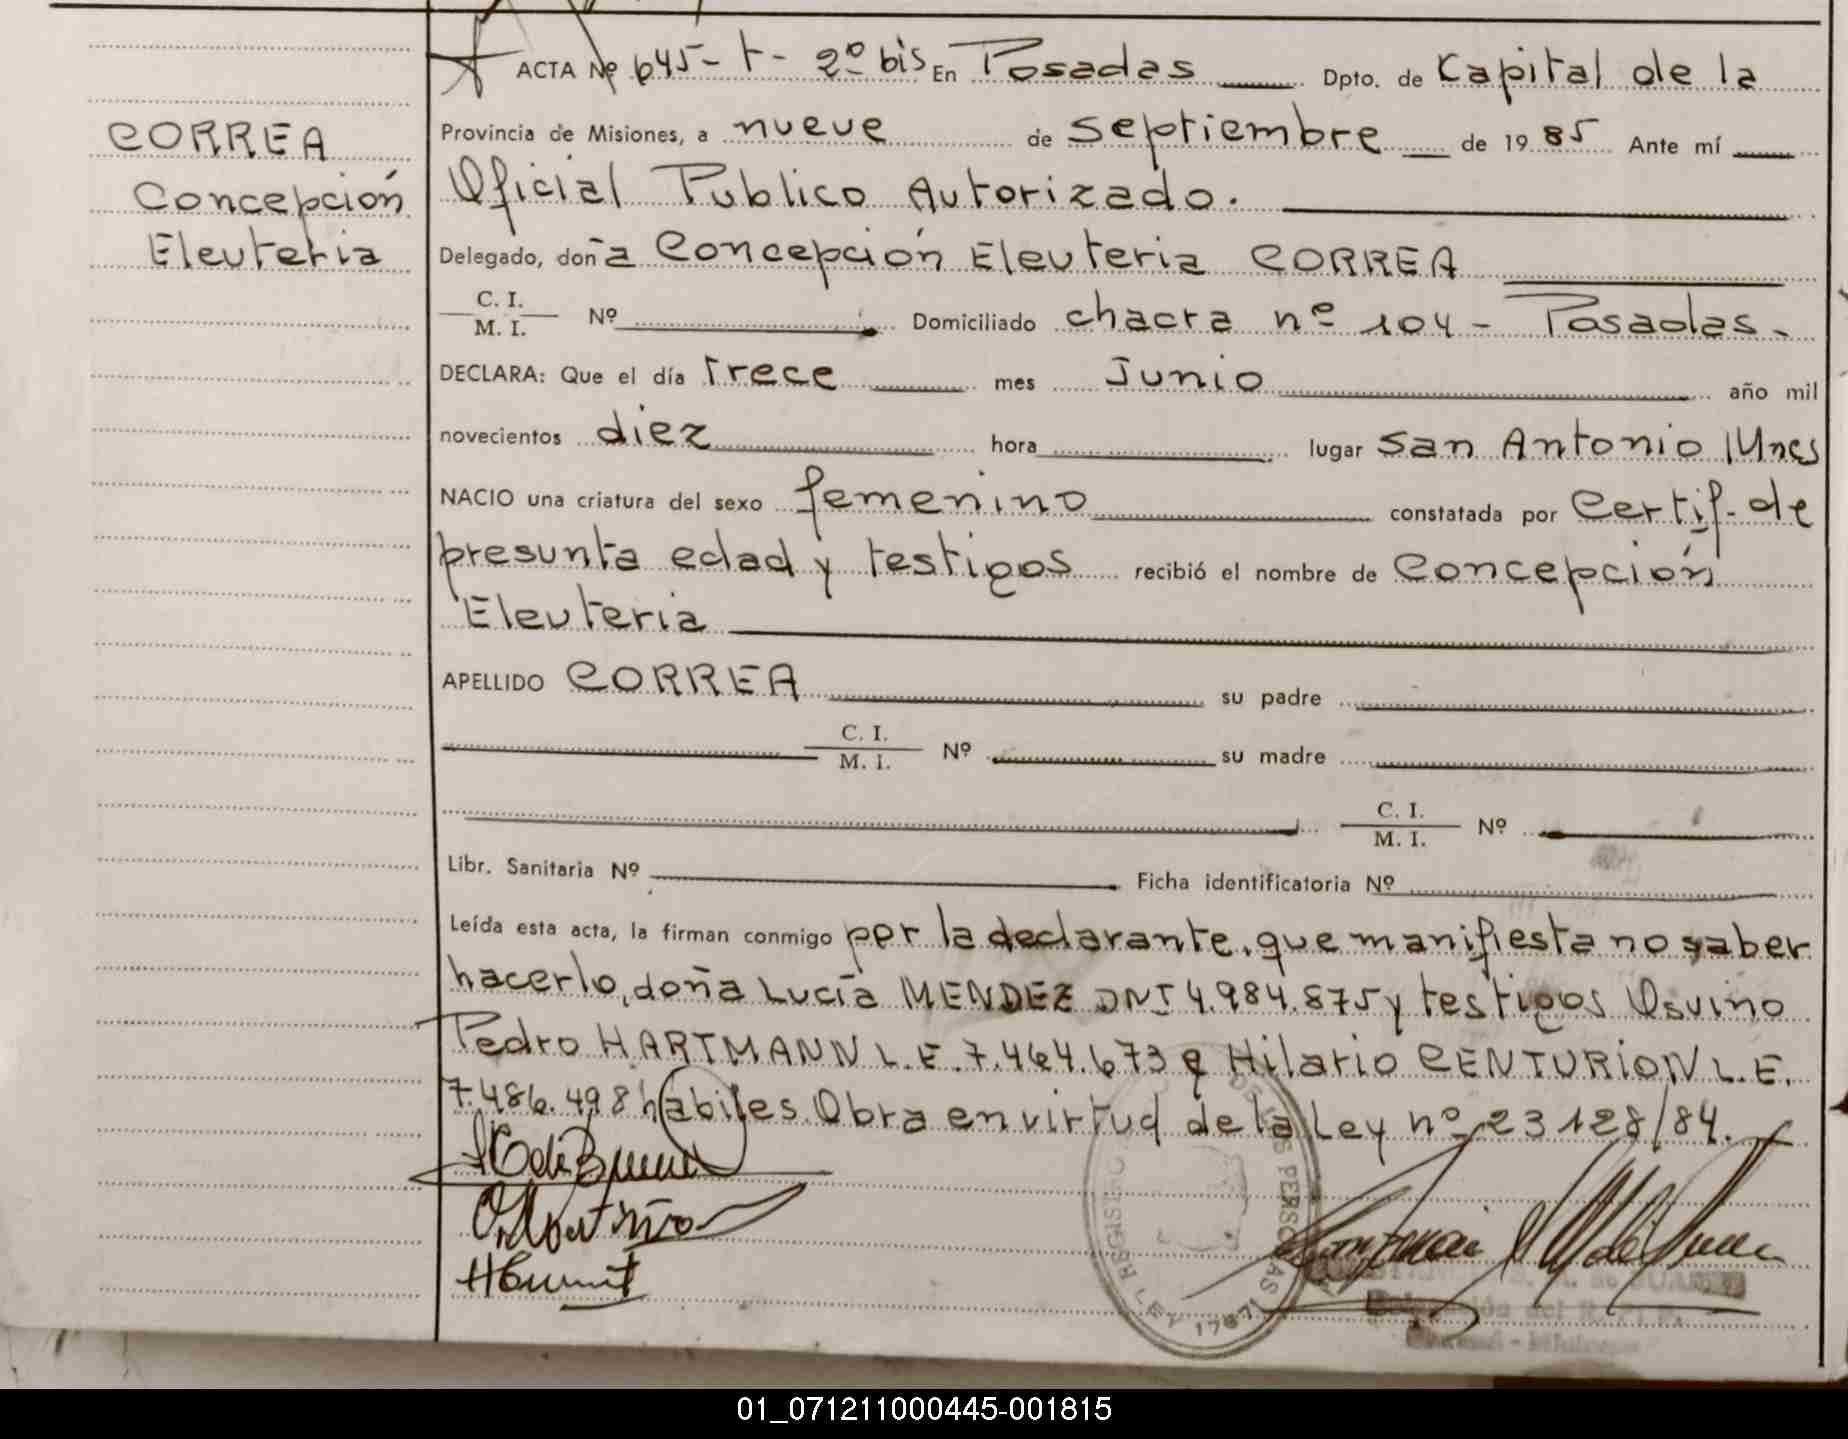 ACTA Nº 645- t- 2º bis En Posadas Dpto. de Capital de la
CORREA
Concepción
Eleuteria
Provincia de Misiones, a nueve de septiembre de 19 85 Ante mí
Oficial Publico Autorizado.
Delegado, doña Concepción Eleuteria CORREA
C. I.
M. I. Nº Domiciliado chacra nº 104 - Posadas-
DECLARA: Que el día Trece mes Junio año mil
novecientos diez hora lugar San Antonio Mnes
NACIO una criatura del sexo femenino constatada por Certif. de
presunta edad y testigos recibió el nombre de Concepción
Eleuteria
APELLIDO CORREA su padre
C. I.
M. I. Nº su madre
C. I.
M. I. Nº
Libr. Sanitaria Nº Ficha identificatoria Nº
Leída esta acta, la firman conmigo por la declarante, que manifiesta no saber
hacerlo, doña Lucía MENDEZ DNI 4.984.875 y testigos Osvino
Pedro HARTMANN L.E. 7.464.673 e Hilario CENTURION L.E.
7.486.498 habiles. Obra en virtud de la Ley nº 23128/84.
REGISTRO DE LAS PERSONAS
LEY 17671
01_071211000445-001815